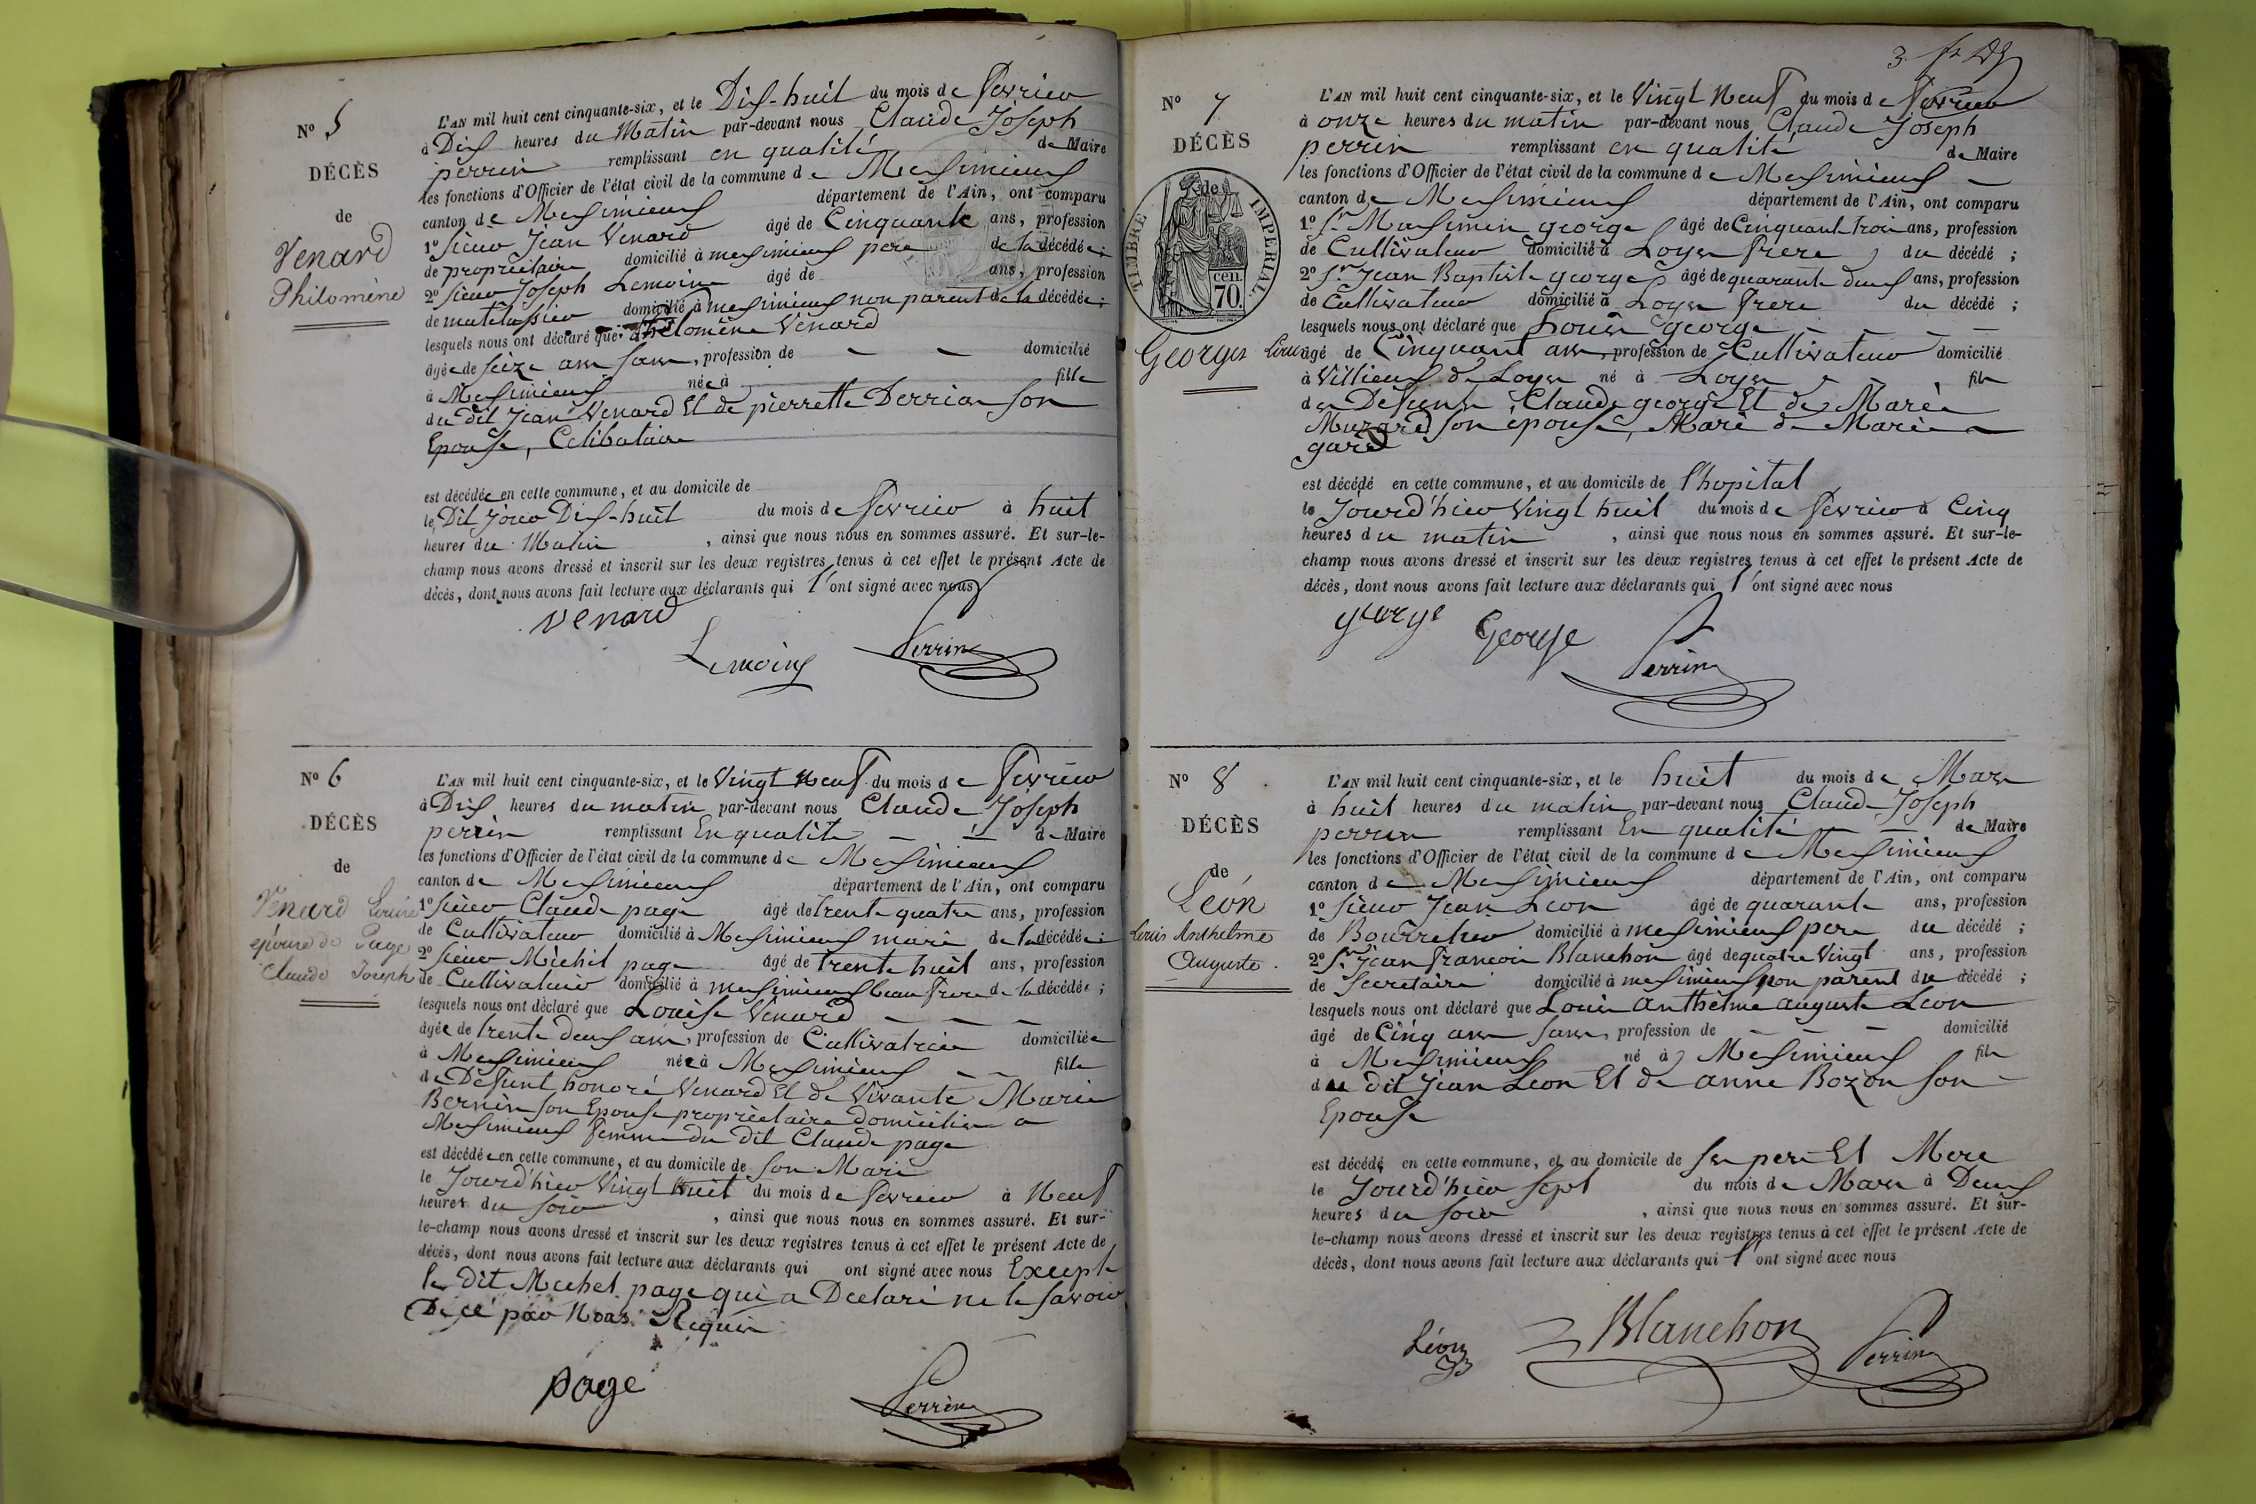 Nº 5
DÉCÈS
de
Venard
Philomène
L'AN mil huit cent cinquante-six, et le Dix-huit du mois de fevrier
à Dix heures du Matin par-devant nous Claude Joseph
perrin remplissant en qualité de Maire
les fonctions d'Officier de l'état civil de la commune de Meximieux
canton de Meximieux département de l'Ain, ont comparu
1º sieur Jean Venard âgé de Cinquante ans, profession
de propriétaire domicilié à meximieux pere de la décédée ;
2º sieur Joseph Lemoine âgé de ans, profession
de matelassier domicilié à meximieux non parent de la décédée ;
lesquels nous ont déclaré que philomène Venard
âgée de seize ans , profession de — — domicilié
à Meximieux née à fille
du dit Jean Venard Et de pierrette Derrias son
Epouse, Celibataire
est décédée en cette commune, et au domicile de
le Dit Jour Dix-huit du mois de fevrier à huit
heures du Matin , ainsi que nous nous en sommes assuré. Et sur-le-
champ nous avons dressé et inscrit sur les deux registres tenus à cet effet le présent Acte de
décès, dont nous avons fait lecture aux déclarants qui l'ont signé avec nous
venard
Lemoine Perrin
Nº 6
DÉCÈS
de
Venard Louise
épouse de Page
Claude Joseph
L'AN mil huit cent cinquante-six, et le Vingt neuf du mois de fevrier
à Dix heures du matin par-devant nous Claude Joseph
perrin remplissant En qualité — — de Maire
les fonctions d'Officier de l'état civil de la commune de Meximieux
canton de Meximieux département de l'Ain, ont comparu
1º sieur Claude page âgé de trente quatre ans, profession
de Cultivateur domicilié à Meximieux mari de la décédée ;
2º sieur Michel page âgé de trente huit ans, profession
de Cultivateur domicilié à meximieux beau frere de la décédée ;
lesquels nous ont déclaré que Louise Venard — — —
âgée de trente deux ans, profession de Cultivatrice domiciliée
à Meximieux née à Meximieux — — fille
de Defunt honoré Venard Et de Vivante Marie
Bernin son Epouse propriétaire domiciliée a
Meximieux femme du dit Claude page
est décédée en cette commune, et au domicile de son Mari
le Jourd'hier Vingt huit du mois de fevrier à Neuf
heures du soir , ainsi que nous nous en sommes assuré. Et sur-
le-champ nous avons dressé et inscrit sur les deux registres tenus à cet effet le présent Acte de
décès, dont nous avons fait lecture aux déclarants qui ont signé avec nous Excepté
le dit Michel page qui a Declaré ne le savoir
De ce par Nous Requis
page Perrin
Nº 7
DÉCÈS
de
TIMBRE IMPERIAL
70 cen.
Georges Louis
L'AN mil huit cent cinquante-six, et le Vingt Neuf du mois de fevrier
à onze heures du matin par-devant nous Claude Joseph
perrin remplissant en qualité de Maire
les fonctions d'Officier de l'état civil de la commune de Meximieux —
canton de Meximieux département de l'Ain, ont comparu
1º Sr Maximin george âgé de Cinquant trois ans, profession
de Cultivateur domicilié à Loyes frere du décédé ;
2º Sr Jean Baptiste george âgé de quarante deux ans, profession
de Cultivateur domicilié à Loyes frere du décédé ;
lesquels nous ont déclaré que Louis george — — —
âgé de Cinquant ans, profession de Cultivateur domicilié
à Villieux de Loyes né à Loyes — — fils
de Defunts Claude george Et de Marie
Muzard son epouse, Mari de Marie
gard
est décédé en cette commune, et au domicile de l'hopital
le Jourd'hier Vingt huit du mois de fevrier à Cinq
heures du matin , ainsi que nous nous en sommes assuré. Et sur-le-
champ nous avons dressé et inscrit sur les deux registres tenus à cet effet le présent Acte de
décès, dont nous avons fait lecture aux déclarants qui l'ont signé avec nous
george George Perrin
Nº 8
DÉCÈS
de
Léon
Louis Anthelme
Auguste
L'AN mil huit cent cinquante-six, et le huit du mois de Mars
à huit heures du matin par-devant nous Claude Joseph
perrin remplissant En qualité — — de Maire
les fonctions d'Officier de l'état civil de la commune de Meximieux
canton de Meximieux département de l'Ain, ont comparu
1º sieur Jean Leon âgé de quarante ans, profession
de Bourrelier domicilié à meximieux pere du décédé ;
2º Sr Jean francois Blanchon âgé de quatre Vingt ans, profession
de Secretaire domicilié à meximieux non parent du décédé ;
lesquels nous ont déclaré que Louis anthelme auguste Leon
âgé de Cinq ans , profession de — — — domicilié
à Meximieux né à Meximieux fils
du dit Jean Leon Et de anne Bozon son —
Epouse
est décédé en cette commune, et au domicile de ses pere Et Mere
le Jourd'hier sept du mois de Mars à Deux
heures du soir , ainsi que nous nous en sommes assuré. Et sur-
le-champ nous avons dressé et inscrit sur les deux registres tenus à cet effet le présent Acte de
décès, dont nous avons fait lecture aux déclarants qui l'ont signé avec nous
Léon Blanchon Perrin